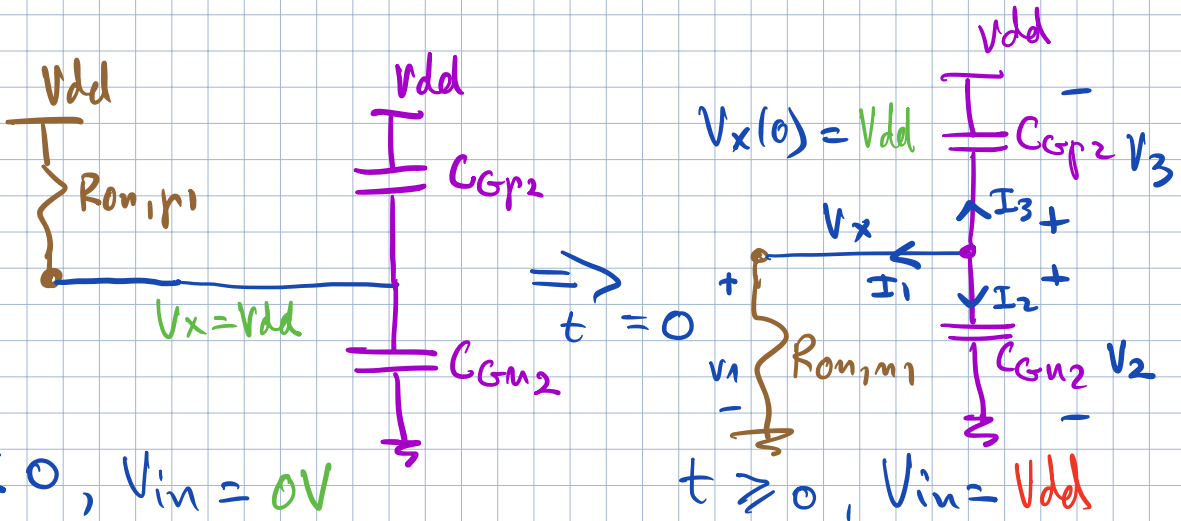 Vdd
Ron,p1
Vx=Vdd
Vdd
CGp2
CGn2
0, Vin = 0V
=>
t = 0
Vx(0) = Vdd
Vdd
-
CGp2 V3
I3 +
Vx
I1
+
+
I2
V1
Ron,n1
CGn2 V2
-
-
t ≥ 0, Vin = Vdd